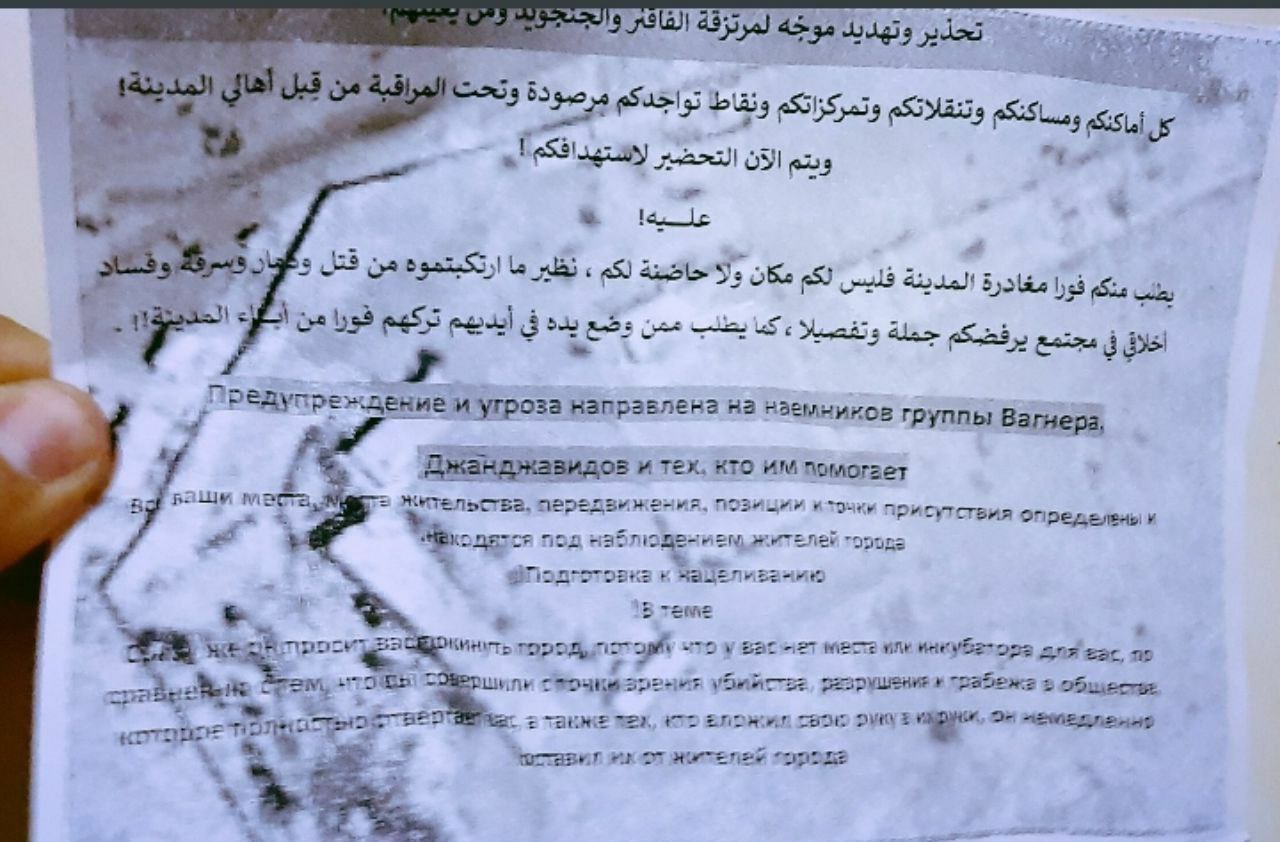 تحذير وتهديد موجّه لمرتزقة الفاقنر والجنجويد ومن يعينهم!
كل أماكنكم ومساكنكم وتنقلاتكم وتمركزاتكم ونقاط تواجدكم مرصودة وتحت المراقبة من قِبل أهالي المدينة!
ويتم الآن التحضير لاستهدافكم !
علـــيه!
يطلب منكم فورا مغادرة المدينة فليس لكم مكان ولا حاضنة لكم ، نظير ما ارتكبتموه من قتل ودمار وسرقة وفساد
أخلاقي في مجتمع يرفضكم جملة وتفصيلا ، كما يطلب ممن وضع يده في أيديهم تركهم فورا من أبناء المدينة!! .
Предупреждение и угроза направлена на наемников группы Вагнера,
Джанджавидов и тех, кто им помогает
Все ваши места, места жительства, передвижения, позиции и точки присутствия определены и
находятся под наблюдением жителей города
Подготовка к нацеливанию
!В теме
же он просит вас покинуть город, потому что у вас нет места или инкубатора для вас, по
сравнению с тем, что вы совершили с точки зрения убийства, разрушения и грабежа в обществе,
которое полностью отвергает вас, а также тех, кто вложил свою руку в их руки, он немедленно
оставил их от жителей города